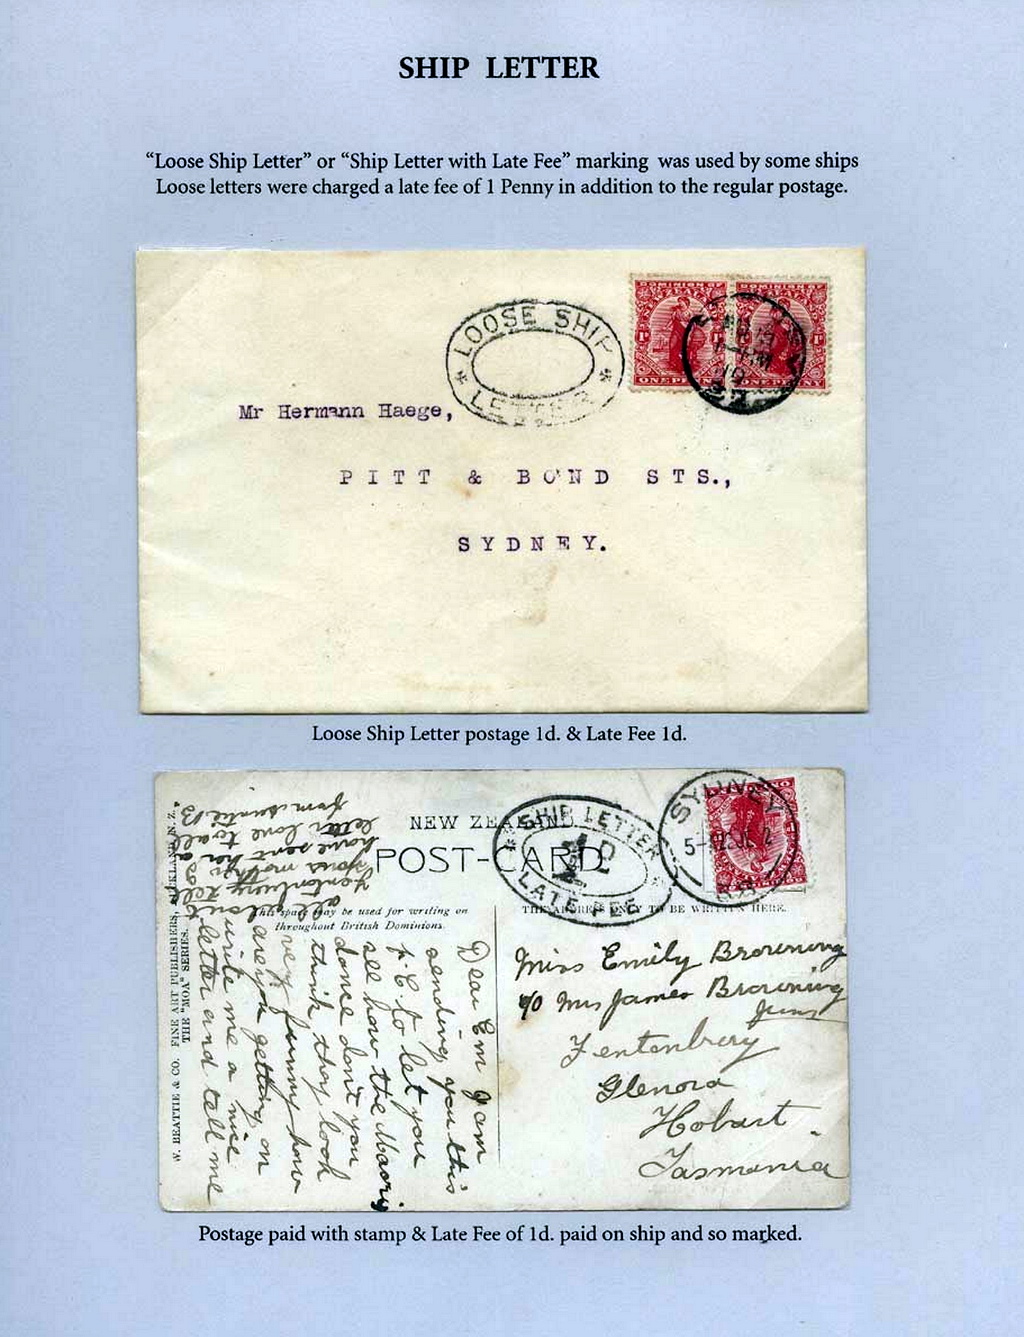 SHIP LETTER
“Loose Ship Letter” or “Ship Letter with Late Fee” marking was used by some ships
Loose letters were charged a late fee of 1 Penny in addition to the regular postage.
LOOSE SHIP
LETTER
DOMINION OF
DOMINION OF
ONE PENNY
ONE PENNY
Mr Hermann Haege,
PITT & BOND STS.,
SYDNEY.
Loose Ship Letter postage 1d. & Late Fee 1d.
NEW ZEALAND.
POST-CARD
SHIP LETTER
1D
LATE FEE
SYDNEY
This space may be used for writing on
throughout British Dominions.
THE ADDRESS ONLY TO BE WRITTEN HERE.
W. BEATTIE & CO. FINE ART PUBLISHERS, AUCKLAND, N.Z.
THE "MOA" SERIES.
Dear Em I am
sending you this
P C to let you
see how the Maory
dance don't you
think they look
very funny how
are you getting on
write me a nice
letter and tell me
all about
Fentonbury tell
your mother I
have sent her a
letter love to all
from
Miss Emily Browning
c/o Mrs James Browning
Junr
Fentonbury
Glenora
Hobart
Tasmania
Postage paid with stamp & Late Fee of 1d. paid on ship and so marked.